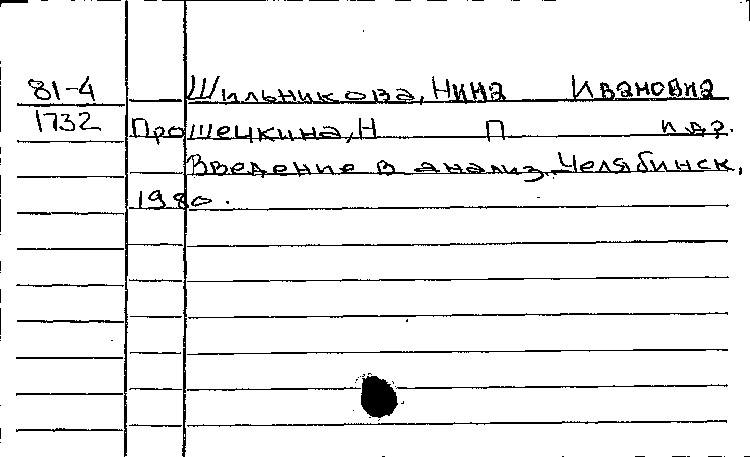 81-4 Шильникова, Нина Ивановна
1732 Прошечкина, Н П и др.
Введение в анализ. Челябинск,
1980.